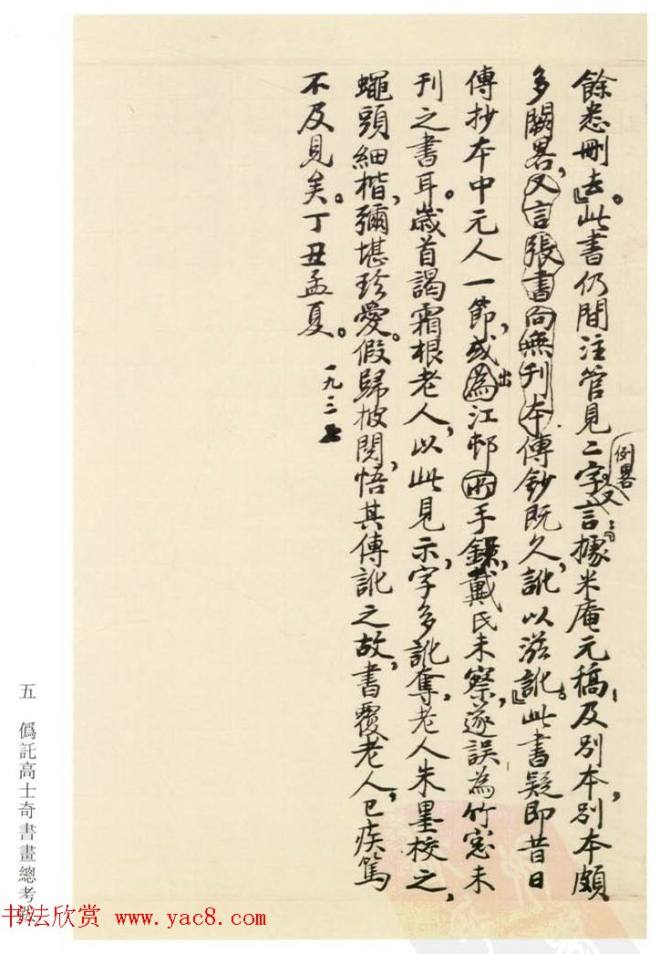 餘悉刪去。』此書仍間注管見二字。又言據米庵元稿，及別本，別本頗
例畧
多闕畧，又言張書向無刊本，傳鈔既久，訛以滋訛。』此書疑即昔日
傳抄本中元人一節，或為江邨兩手錄，戴氏未察，遂誤為竹窓未
出
刊之書耳。歲首謁霜根老人，以此見示，字多訛奪，老人朱墨校之，
蠅頭細楷，彌堪珍愛。假歸披閱，悟其傳訛之故，書覆老人，已疾篤
不及見矣。丁丑孟夏。
一九三七
五 僞託高士奇書畫總考辨
书法欣赏 www.yac8.com